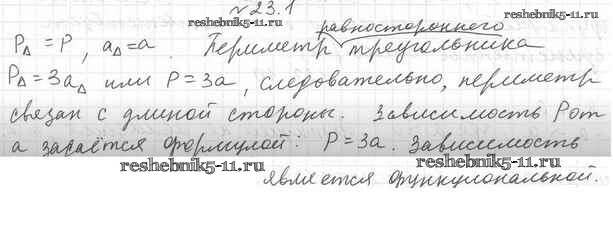 №23.1
reshebnik5-11.ru reshebnik5-11.ru
равностороннего
P△ = P, a△ = a. Периметр треугольника
P△ = 3a△ или P = 3a, следовательно, периметр
связан с длиной стороны. Зависимость P от
a задаётся формулой: P = 3a. Зависимость
reshebnik5-11.ru reshebnik5-11.ru
является функциональной.